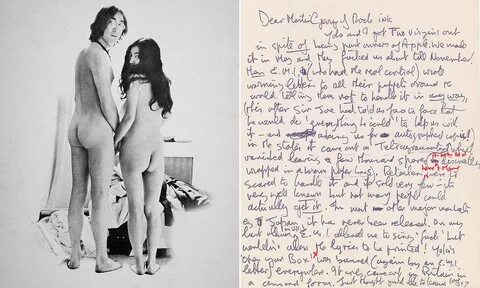 Dear Martin (perry) of Rock ink
Yoko and I got Two Virgins out
in spite of being part owners of Apple. We made
it in May and they fucked us about till November!
Then E.M.I. (who had the real control) wrote
warning letters to all their puppets around the
world telling them not to handle it in any way.
(this after Sir Joe had told us face to face that
he would do 'everything he could' to help us with
it – and asking us for autographed copies!)
in the States it came out on Tetragrammaton which
vanished leaving a few thousand
wrapped in a brown paper bag). Retailers were
scared to handle it and it sold very few – its
very well known but not many people could
actually get it. In the most other major markets
eg Japan it has never been released. On my
last album E.M.I. allowed me to sing 'fuck' but
wouldn't allow the lyrics to be printed! Yoko's
'open your Box' was banned (again by an E.M.I.
letter) everywhere. It only came out in Britain in
a censored form. Just thought you'd like to know